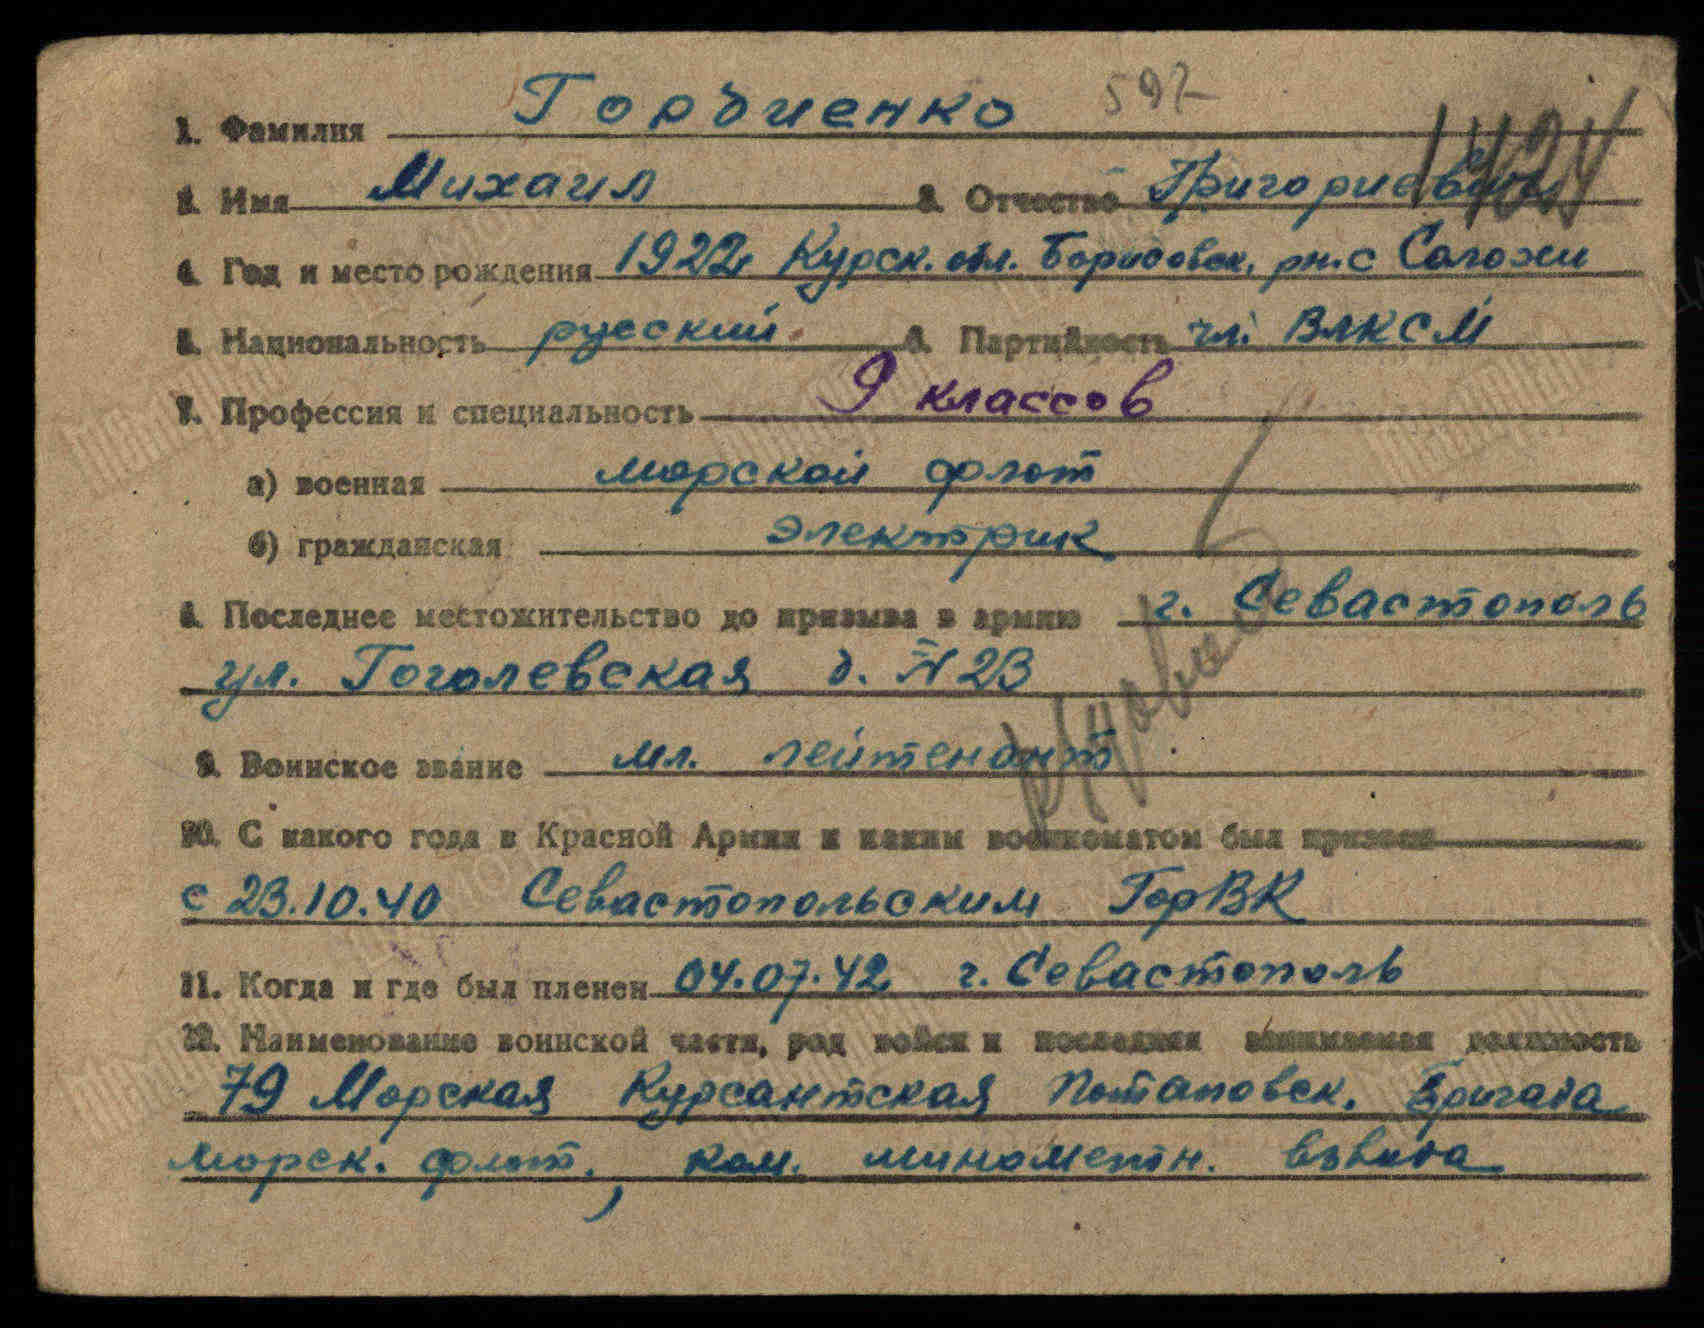 1. Фамилия Горбиенко 597
1424
2. Имя Михаил 3. Отчество Григориевич
4. Год и место рождения 1922 Курск. обл. Борисовск. рн. с
5. Национальность русский 6. Партийность чл. ВЛКСМ
7. Профессия и специальность 9 классов
а) военная морской флот
б) гражданская электрик
8. Последнее местожительство до призыва в армию г. Севастополь
ул. Гоголевская д. № 23
9. Воинское звание мл. лейтенант
10. С какого года в Красной Армии и каким военкоматом был призван
с 23.10.40 Севастопольским ГорВК
11. Когда и где был пленен 04.07.42 г. Севастополь
12. Наименование воинской части, род войск и последняя занимаемая должность
79 Морская Курсантская Потаповск. Бригада
морск. флот., ком. минометн. взвода